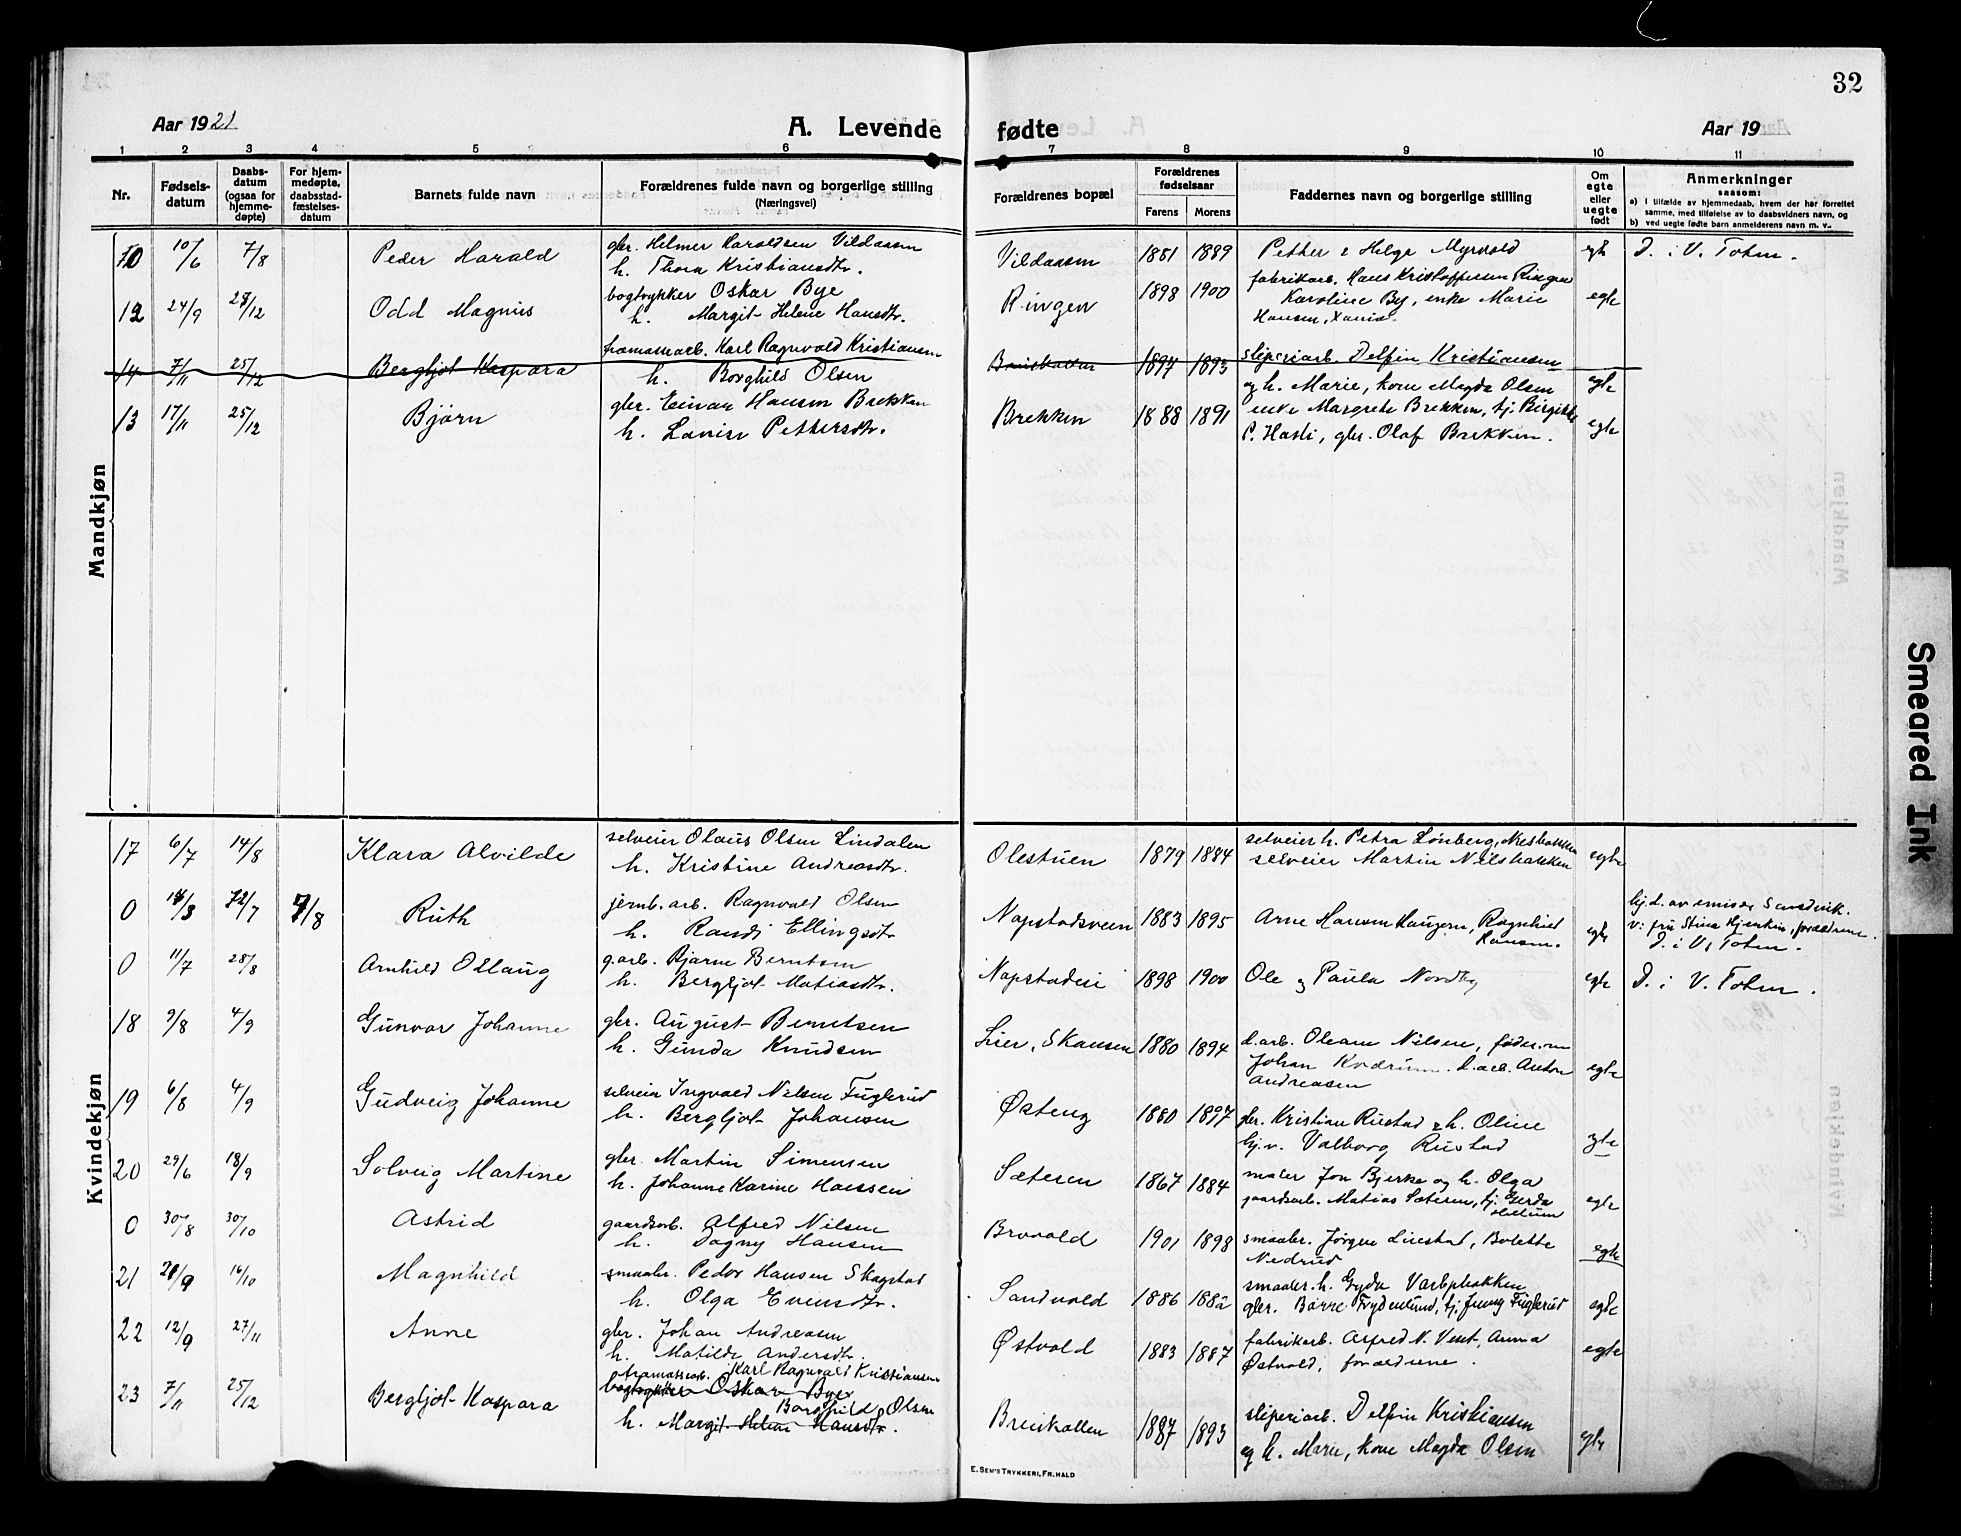 32
Aar 1921
A. Levende
fødte
Aar 19
1 2 3 4 5 6 7 8 9 10 11
Nr.
Fødsels-
datum
Daabs-
datum
(ogsaa for
hjemme-
døpte)
For hjem-
medøpte,
daabsstad-
fæstelses-
datum
Barnets fulde navn
Forældrenes fulde navn og borgerlige stilling
(Næringsvei)
Forældrenes bopæl
Forældrenes
fødselsaar
Farens
Morens
Faddernes navn og borgerlige stilling
Om
egte
eller
uegte
født
Anmerkninger
saasom:
a) i tilfælde av hjemmedaab, hvem der har forrettet
samme, med tilføielse av to daabsvidners navn, og
b) ved uegte fødte barn anmelderens navn m. v..
Mandkjøn
10/6 7/8 Peder Harald
gbr. Helmer Haroldsen Vildaasen
h. Thora Kristiansdtr.
Vildaasen 1881 1889
Petter & Helge Myrvold
egte D. i V. Toten.
12 24/9 27/12 Odd Magnus
bogtrykker Oskar Bye
h. Margit Helene Hansdtr.
Ringen 1898 1900
fabrikarb. Hans Kristoffersen Ringen
Karoline By, enke Marie
Hansen, Xania.
egte
14 7/11 25/12 Bergljot Kaspara
framassearb. Karl Ragnvald Kristiansen
h. Borghild Olsen
Breiskallen 1897 1893
sliperiarb. Delfin Kristiansen
og h. Marie, kone Magda Olsen
egte
13 17/11 25/12 Bjørn
gbr. Einar Hansen Brekken
h. Lovise Pettersdtr.
Brekken 1888 1891
enke Margrete Brekken, tj. Birgitte
P. Hasli, gbr. Olaf Brekken.
egte
Kvindekjøn
17 6/7 14/8 Klara Alvilde
selveier Olaus Olsen Lindalen
h. Kristine Andreasdtr.
Olestuen 1879 1884
selveier h. Petra Lønberg, Neshakken
selveier Martin Nilshakken
egte
0 /3 /7 /8 Ruth
jernb. arb. Ragnvald Olsen
h. Randi Ellingsdtr
Napstadsveen 1883 1895
Arne Hansen Haugern, Ragnhild
Hansen.
egte
hj.d. av emisær Sandvik.
V: fru Stina Hjerkin, forældrene.
D. i V. Toten.
0 11/7 28/8 Arnhild Ollaug
g.arb. Bjarne Berntsen
h. Bergljot Matiasdtr.
Napstadeie 1898 1900
Ole og Paula Nordby
egte D. i V. Toten.
18 9/8 4/9 Gunvor Johanne
gbr. August Berntsen
h. Gunda Knudsen
Lier, Skansen 1880 1894
d.arb. Oleane Nilsen, føder.m
Johan Kværum. d.arb. Anton
Andreasen
egte
19 6/8 4/9 Gudveig Johanne
selveier Ingvald Nilsen Fuglerud
h. Bergljot Johansen
Østeng 1880 1897
gbr. Kristian Rustad & h. Oline
hj.v. Valborg Rustad
egte
20 29/6 18/9 Solveig Martine
gbr. Martin Simensen
h. Johanne Karine Hansen
Sætesen 1867 1884
maler Jon Bjerke og h. Olga
gaardsarb. Matias Sætesen, tj. Gerda
egte
0 30/8 30/10 Astrid
gaardsarb. Alfred Nilsen
h. Dagny Hansen
Brovold 1901 1898
smaabr. Jørgen Linstad, Bolette
Nedrud
egte
21 20/9 16/10 Magnhild
smaabr. Peder Hansen Skogstad
h. Olga Evensdtr.
Sandvold 1886 1882
smaabr. h. Gyda Varbphakken
gbr. Børre Frydenlund, tj. Jenny Fuglerud
egte
22 12/9 27/11 Anne
gbr. Johan Andreasen
h. Matilde Andersdtr.
Østvold 1883 1887
fabrikarb. Alfred N. Vest, Anna
Østvold, forældrene.
egte
23 7/11 25/12 Bergljot Kaspara
framassearb. Karl Ragnvald Kristiansen
bogtrykker Oskar Bye
Borghild Olsen
h. Margit Helene Hansdtr.
Breiskallen 1897 1893
sliperiarb. Delfin Kristiansen
og h. Marie, kone Magda Olsen
egte
E. SEM'S TRYKKERI, FR.HALD
Smeared Ink